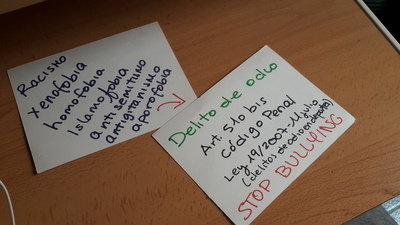 Racismo
xenofobia
homofobia
islamofobia
antisemitismo
antigitanismo
aporofobia
Delito de odio
Art. 510 bis
Código Penal
Ley 19/2007 - 11 julio
(delitos de odio en deporte)
STOP BULLYING